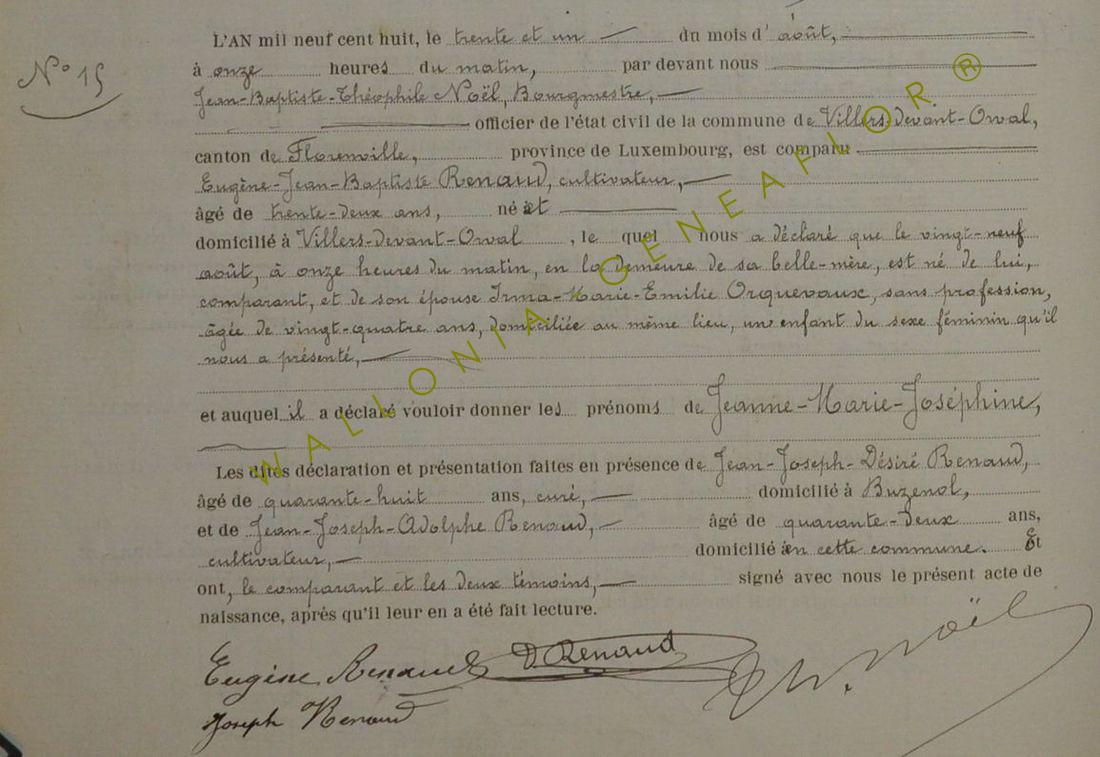 N° 15
L'AN mil neuf cent huit, le trente et un du mois d'août,
à onze heures du matin, par devant nous
Jean-Baptiste-Théophile Noël, Bourgmestre,
officier de l'état civil de la commune de Villers-devant-Orval,
canton de Florenville, province de Luxembourg, est comparu
Eugène-Jean-Baptiste Renaud, cultivateur,
âgé de trente-deux ans, né et
domicilié à Villers-devant-Orval, le quel nous a déclaré que le vingt-neuf
août, à onze heures du matin, en la demeure de sa belle-mère, est né de lui,
comparant, et de son épouse Irma-Marie-Emilie Orquevaux, sans profession,
âgée de vingt-quatre ans, domiciliée au même lieu, un enfant du sexe féminin qu'il
nous a présenté,
et auquel il a déclaré vouloir donner les prénoms de Jeanne-Marie-Joséphine,
Les dites déclaration et présentation faites en présence de Jean-Joseph-Désiré Renaud,
âgé de quarante-huit ans, curé, domicilié à Buzenol,
et de Jean-Joseph-Adolphe Renaud, âgé de quarante-deux ans,
cultivateur, domicilié en cette commune. Et
ont, le comparant et les deux témoins, signé avec nous le présent acte de
naissance, après qu'il leur en a été fait lecture.
Eugène Renaud D. Renaud Th. Noël
Joseph Renaud
WALLONIA GENEAFLOR ®